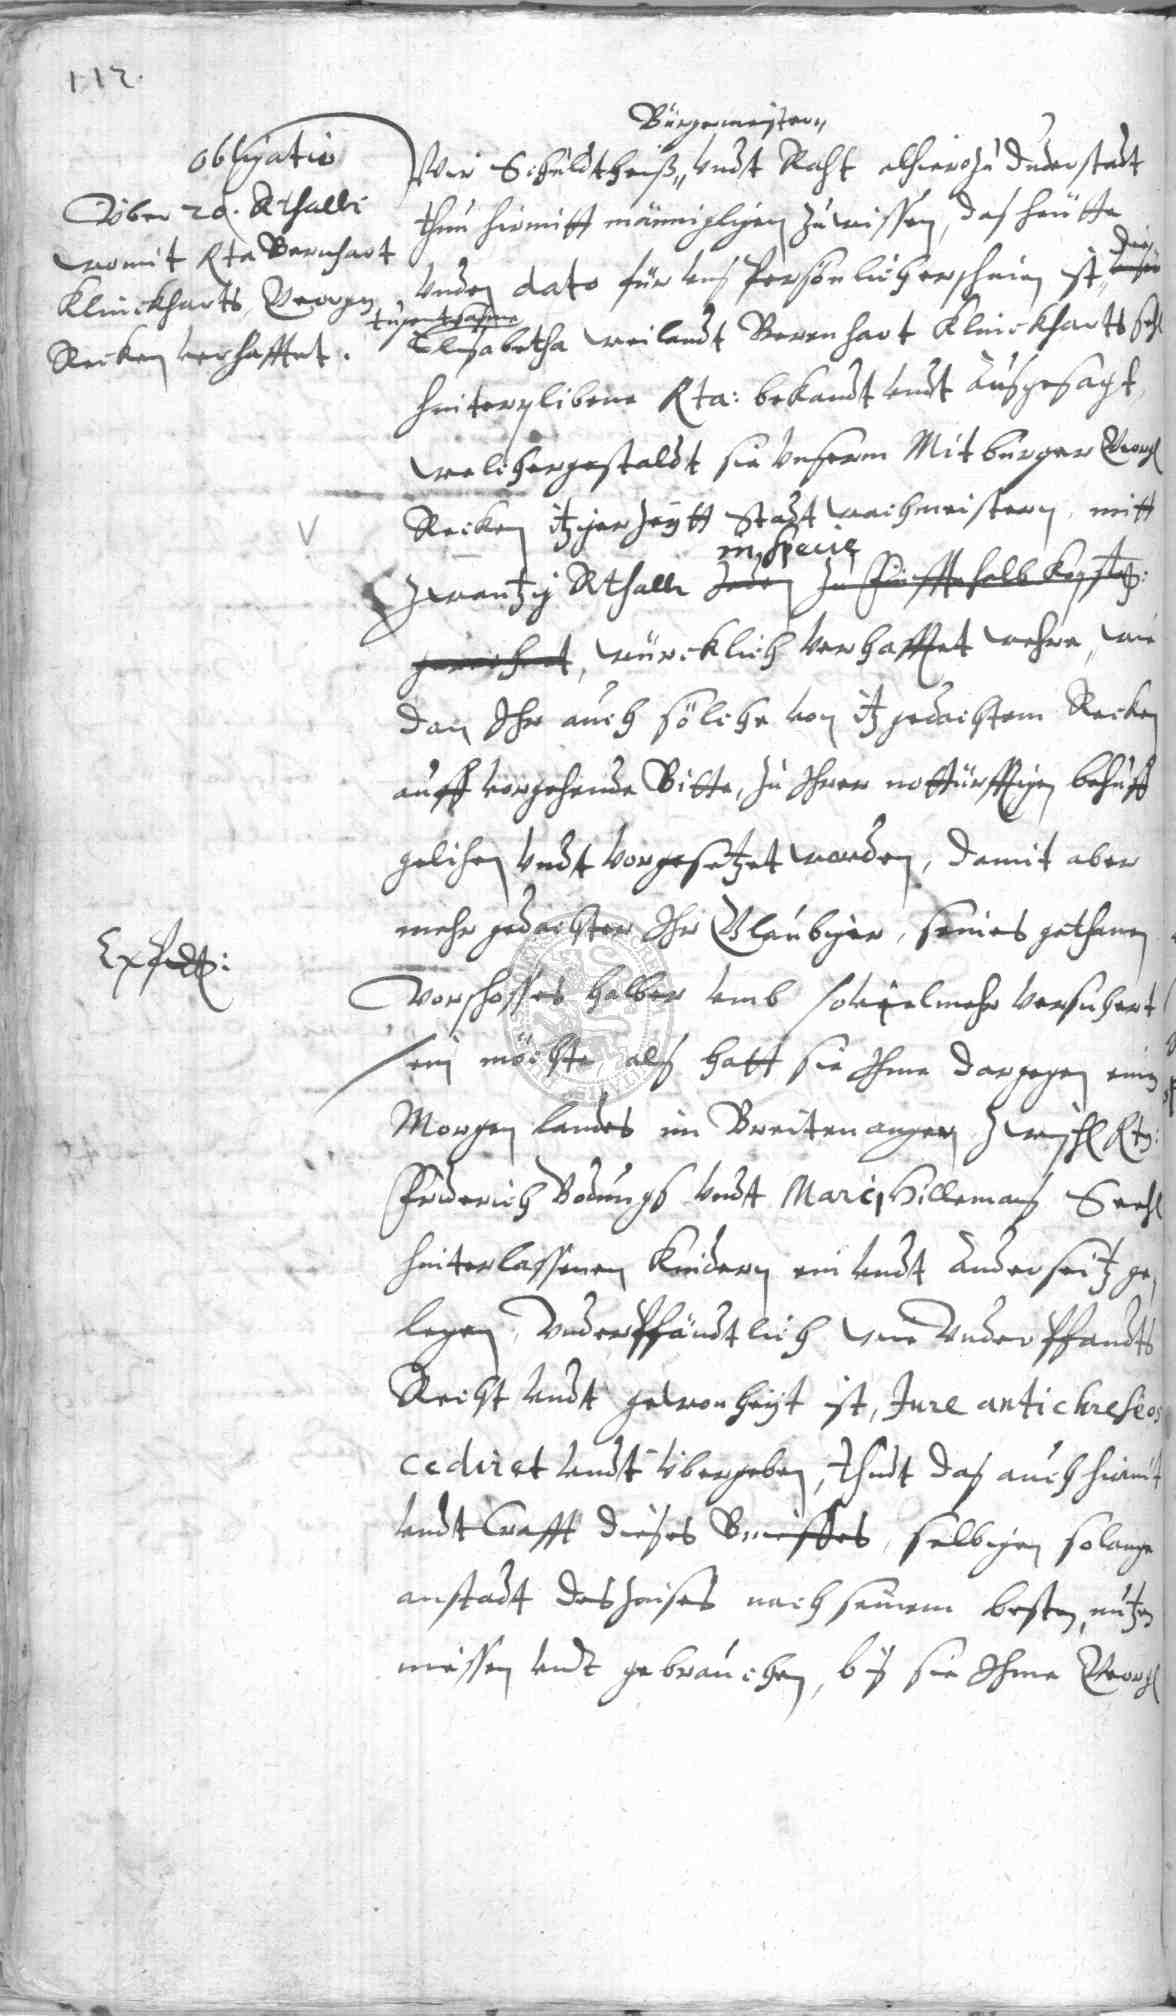 112.
Obligatio
Über 20. Rthalle
womit Rta Bernhart
Klinckharts, Georgen
Recken verhafftet.
Bürgemeister,,
Wir Schuldtheiß,, undt Raht alhier zu Duderstadt
thun hirmitt männiglichen zu wissen, das heütte
unden dato für uns Persönlich erschinen ist,, die
tugentsahme
Elisabetha weilandt Berenhart Klinckharts sehl
hinterplibene Rta: bekandt undt ausgesagt,
welichergestaldt sie unserm Mitbürger Georg
Recken itziger Zeytt Stadt wachmeistern, mitt
in specie
Zwantzig Rthalle Jeden zu Fünfftehalb Kopstz:
gerechnet, würcklich verhafftet wehre, wie
dan Ihr auch sölche von itz gedachtem Recken
auff vorgehende Bitte, zu Ihrer nottürfftigen behuff
gelihen undt vorgesetzet worden, damit aber
mehr gedachter Ihr Gläubiger, seines gethanen
Expedt:
Vorschosses halber umb sovielmehr versichert
sein möchte, als hatt sie Ihme dargegen einen
Morgen Landes im Breitenanger zwischl Rtz:
Friderich Bodungs undt Marci Hillemans Seehl
hinterlassenen Kindern ein undt anderseitz ge,
legen, Underpfändtlich wie Underpfandts
Recht undt gewonheyt ist, Jure antichreseos
cediret undt übergeben, thudt das auch hirmit
undt Crafft dieses Brieffes, selbigen solange
anstadt des Zinses nach seinem besten, nutzen
niessen undt gebrauchen, bis sie Ihme Georg